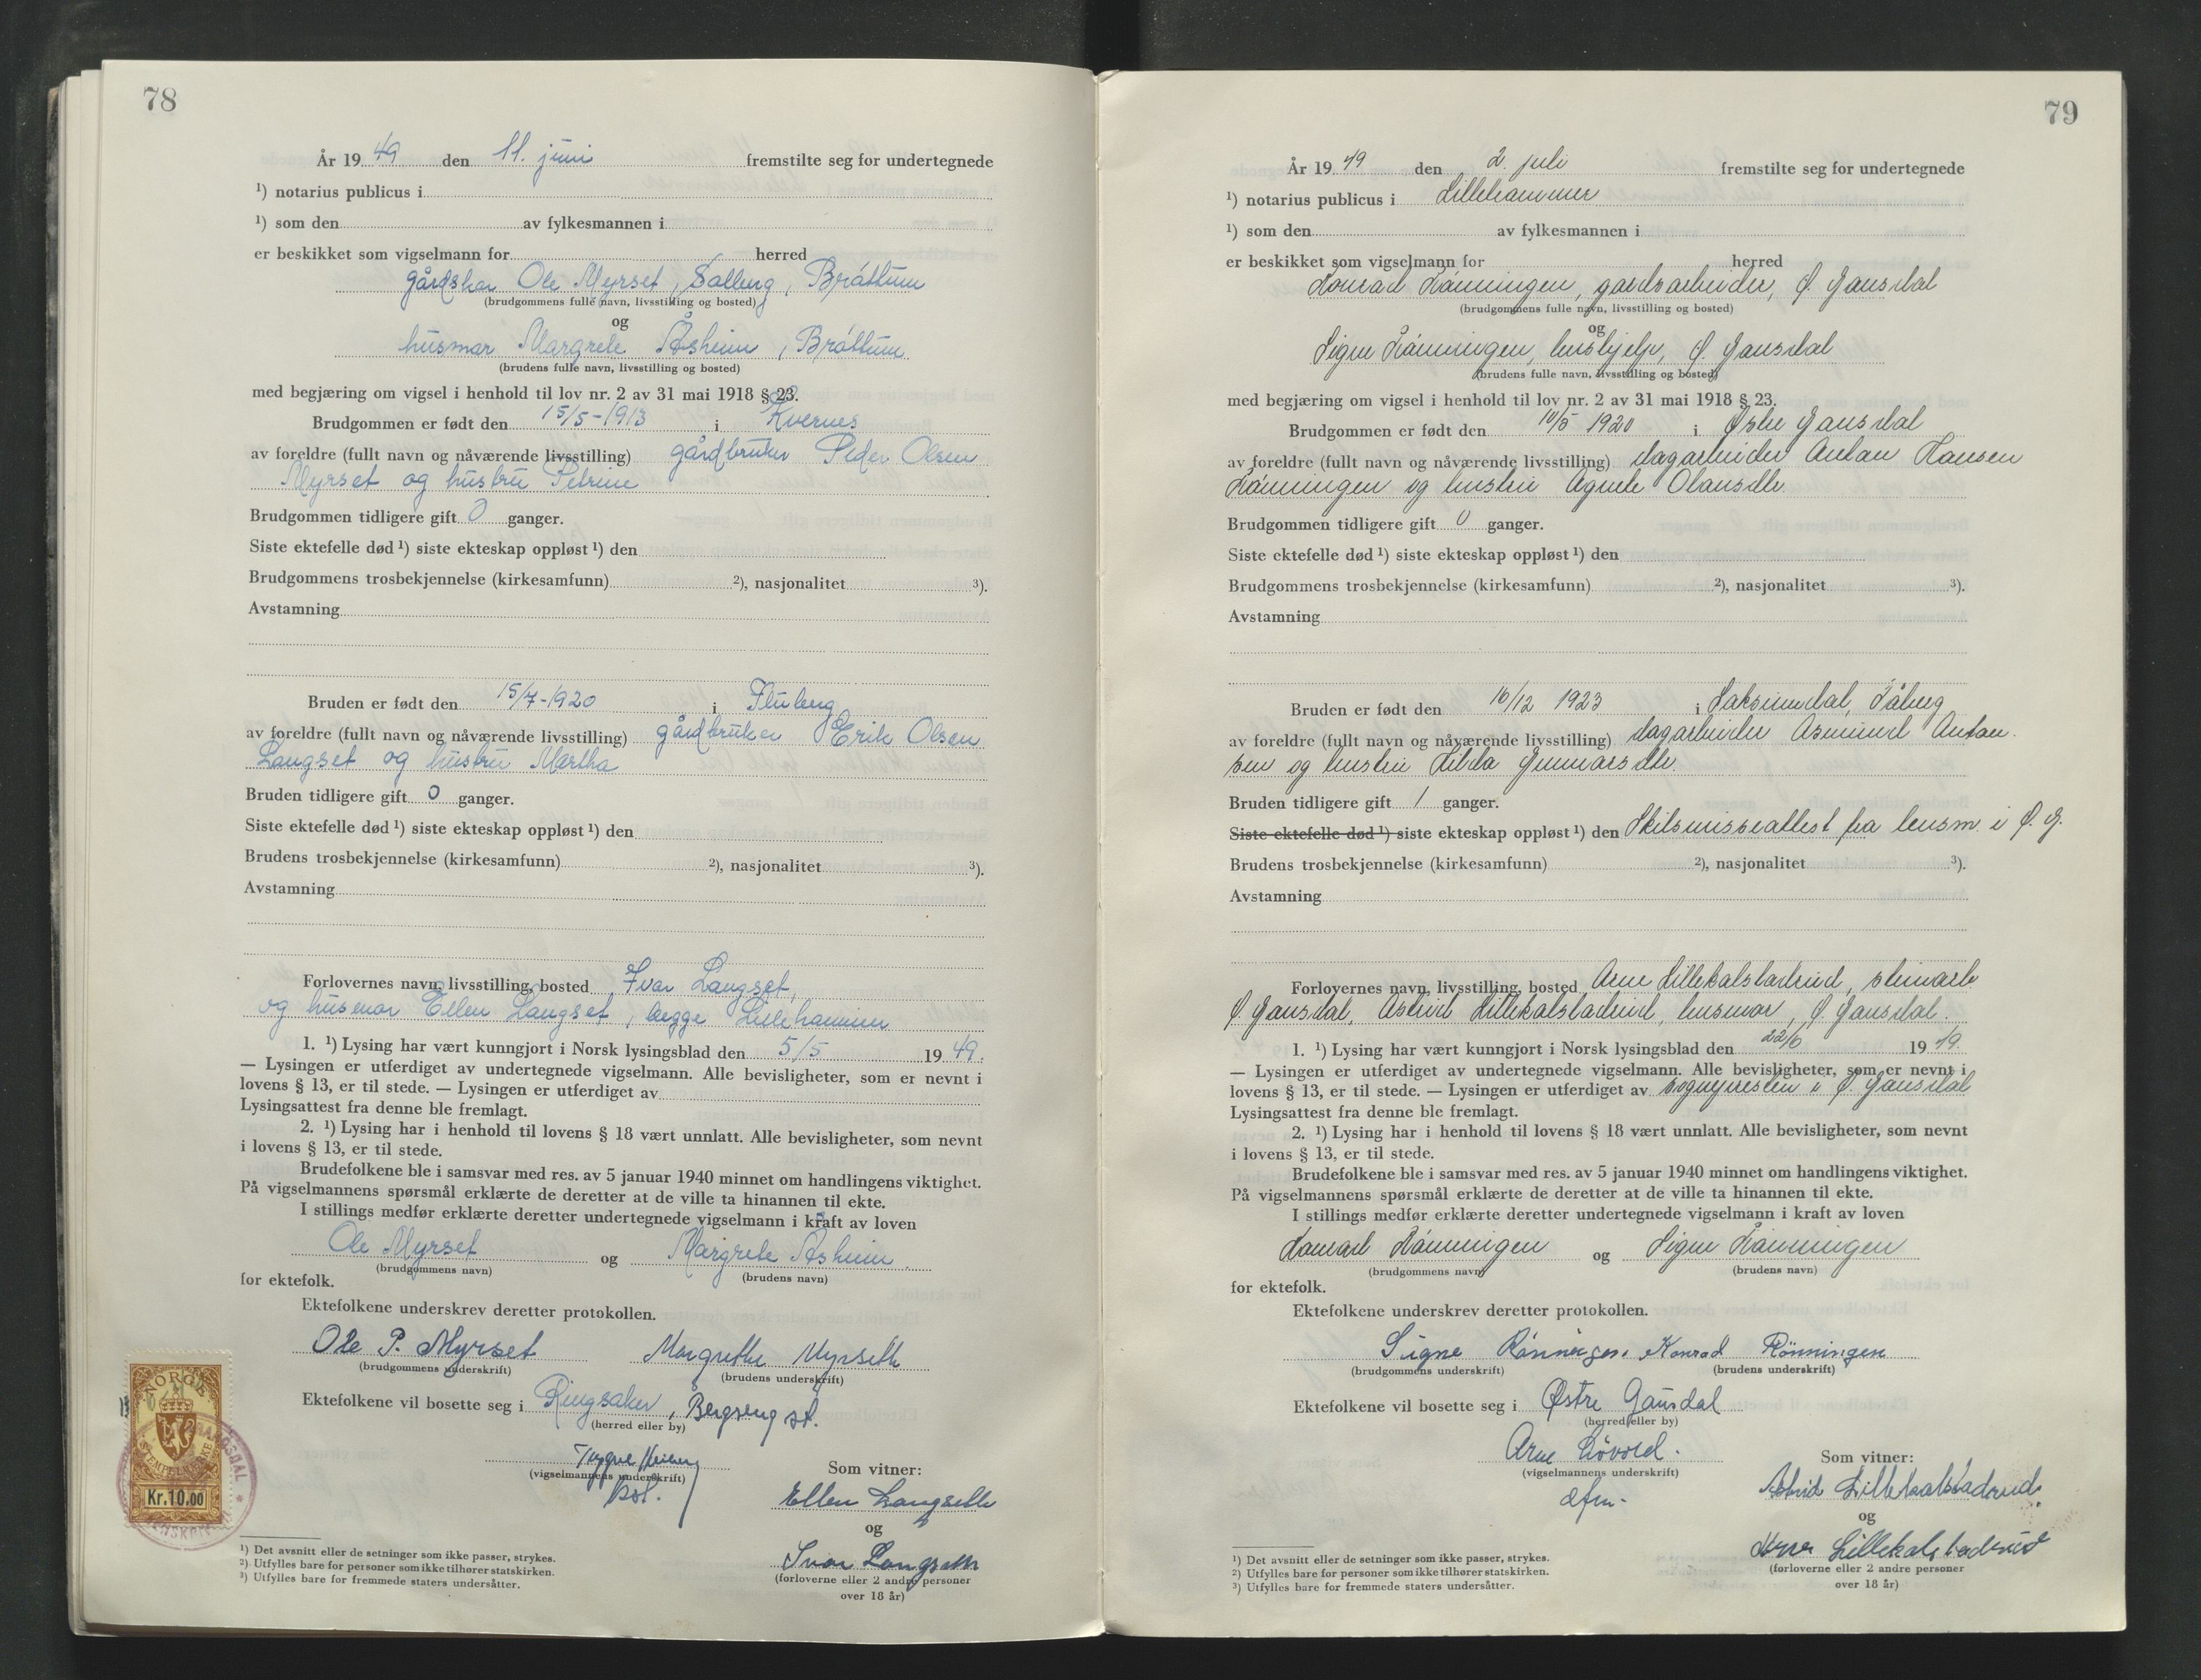 78
År 19 49 den 11. juni fremstilte seg for undertegnede
¹) notarius publicus i
¹) som den av fylkesmannen i
er beskikket som vigselmann for herred
gårdskar Ole Myrset, Salberg, Brøttum
(brudgommens fulle navn, livsstilling og bosted)
og
husmor Margrete Åsheim, Brøttum
(brudens fulle navn, livsstilling og bosted)
med begjæring om vigsel i henhold til lov nr. 2 av 31 mai 1918 § 23.
Brudgommen er født den 15/5-1913 i Kvernes
av foreldre (fullt navn og nåværende livsstilling) gårdbruker Peder Olsen
Myrset og hustru Petrine
Brudgommen tidligere gift 0 ganger.
Siste ektefelle død ¹) siste ekteskap oppløst ¹) den
Brudgommens trosbekjennelse (kirkesamfunn) ²), nasjonalitet ³).
Avstamning
Bruden er født den 15/7-1920 i Fluberg
av foreldre (fullt navn og nåværende livsstilling) gårdbruker Erik Olsen
Langset og hustru Martha
Bruden tidligere gift 0 ganger.
Siste ektefelle død ¹) siste ekteskap oppløst ¹) den
Brudens trosbekjennelse (kirkesamfunn) ²), nasjonalitet ³).
Avstamning
Forlovernes navn, livsstilling, bosted Ivar Langset,
og husmor Ellen Langset, begge Lillehammer
1. ¹) Lysing har vært kunngjort i Norsk lysingsblad den 5/5 19 49.
— Lysingen er utferdiget av undertegnede vigselmann. Alle bevisligheter, som er nevnt i
lovens § 13, er til stede. — Lysingen er utferdiget av
Lysingsattest fra denne ble fremlagt.
2. ¹) Lysing har i henhold til lovens § 18 vært unnlatt. Alle bevisligheter, som nevnt
i lovens § 13, er til stede.
Brudefolkene ble i samsvar med res. av 5 januar 1940 minnet om handlingens viktighet.
På vigselmannens spørsmål erklærte de deretter at de ville ta hinannen til ekte.
I stillings medfør erklærte deretter undertegnede vigselmann i kraft av loven
Ole Myrset og Margrete Åsheim
(brudgommens navn) (brudens navn)
for ektefolk.
Ektefolkene underskrev deretter protokollen.
Ole P. Myrset Margrethe Myrseth
(brudgommens underskrift) (brudens underskrift)
Ektefolkene vil bosette seg i Ringsaker, Bergseng st.
(herred eller by)
(vigselmannens underskrift)
Som vitner:
Ellen Langseth
og
Ivar Langseth
(forloverne eller 2 andre personer
over 18 år)
NORGE
STEMPELMERKE
Kr.10.00
¹) Det avsnitt eller de setninger som ikke passer, strykes.
²) Utfylles bare for personer som ikke tilhører statskirken.
³) Utfylles bare for fremmede staters undersåtter.
79
År 19 49 den 2. juli fremstilte seg for undertegnede
¹) notarius publicus i Lillehammer
¹) som den av fylkesmannen i
er beskikket som vigselmann for herred
Konrad Rønningen, gardsarbeider, Ø. Gausdal
(brudgommens fulle navn, livsstilling og bosted)
og
Signe Rønningen, hushjelp, Ø. Gausdal
(brudens fulle navn, livsstilling og bosted)
med begjæring om vigsel i henhold til lov nr. 2 av 31 mai 1918 § 23.
Brudgommen er født den 10/5 1920 i Østre Gausdal
av foreldre (fullt navn og nåværende livsstilling) dagarbeider Anton Hansen
Rønningen og hustru Agnete Olausdtr.
Brudgommen tidligere gift 0 ganger.
Siste ektefelle død ¹) siste ekteskap oppløst ¹) den
Brudgommens trosbekjennelse (kirkesamfunn) ²), nasjonalitet ³).
Avstamning
Bruden er født den 16/12 1923 i Saksumdal, Fåberg
av foreldre (fullt navn og nåværende livsstilling) dagarbeider Asmund Anton
sen og hustru Hilda Gunnarsdtr.
Bruden tidligere gift 1 ganger.
Siste ektefelle død ¹) siste ekteskap oppløst ¹) den Skilsmisseattest fra lensm. i Ø. G.
Brudens trosbekjennelse (kirkesamfunn) ²), nasjonalitet ³).
Avstamning
Forlovernes navn, livsstilling, bosted Arne Lillekalstadrud, steinarb
Ø. Gausdal, Astrid Lillekalstadrud, husmor, Ø. Gausdal.
1. ¹) Lysing har vært kunngjort i Norsk lysingsblad den 22/6 19 49.
— Lysingen er utferdiget av undertegnede vigselmann. Alle bevisligheter, som er nevnt i
lovens § 13, er til stede. — Lysingen er utferdiget av sognepresten i Ø. Gausdal
Lysingsattest fra denne ble fremlagt.
2. ¹) Lysing har i henhold til lovens § 18 vært unnlatt. Alle bevisligheter, som nevnt
i lovens § 13, er til stede.
Brudefolkene ble i samsvar med res. av 5 januar 1940 minnet om handlingens viktighet.
På vigselmannens spørsmål erklærte de deretter at de ville ta hinannen til ekte.
I stillings medfør erklærte deretter undertegnede vigselmann i kraft av loven
Konrad Rønningen og Signe Rønningen
(brudgommens navn) (brudens navn)
for ektefolk.
Ektefolkene underskrev deretter protokollen.
Signe Rønningen Konrad Rønningen
(brudgommens underskrift) (brudens underskrift)
Ektefolkene vil bosette seg i Østre Gausdal
(herred eller by)
Arne Løvold.
(vigselmannens underskrift)
Som vitner:
Astrid Lillekalstadrud.
og
Arne Lillekalstadrud
(forloverne eller 2 andre personer
over 18 år)
¹) Det avsnitt eller de setninger som ikke passer, strykes.
²) Utfylles bare for personer som ikke tilhører statskirken.
³) Utfylles bare for fremmede staters undersåtter.